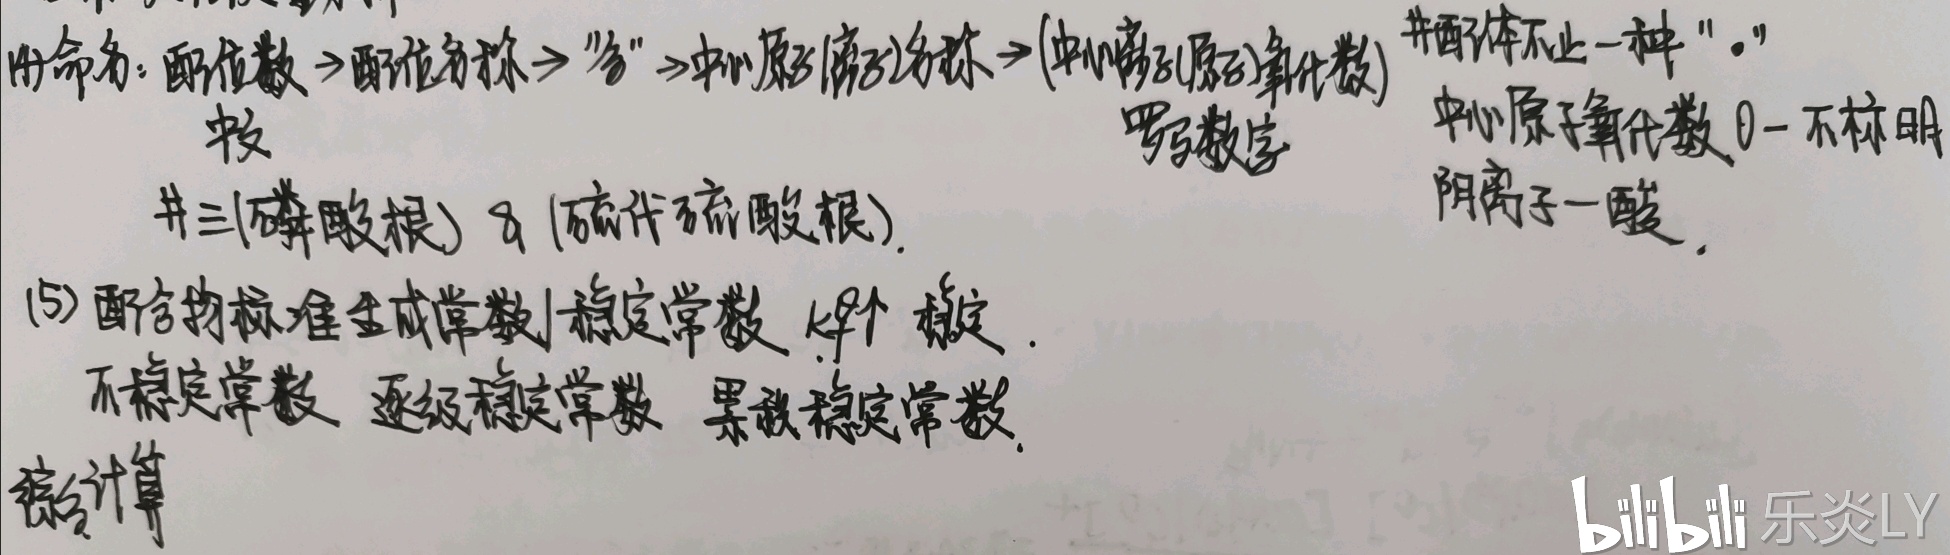 (4)命名：配位数→配位名称→"合"→中心原子(离子)名称→(中心离子(原子)氧化数) #配体不止一种"•"
中文 罗马数字 中心原子氧化数0-不标明
#三(磷酸根) & (硫代硫酸根). 阴离子-酸.
(5)配合物标准生成常数/稳定常数 Kf↑ 稳定.
不稳定常数 逐级稳定常数 累积稳定常数.
综合计算
bilibili 乐炎LY